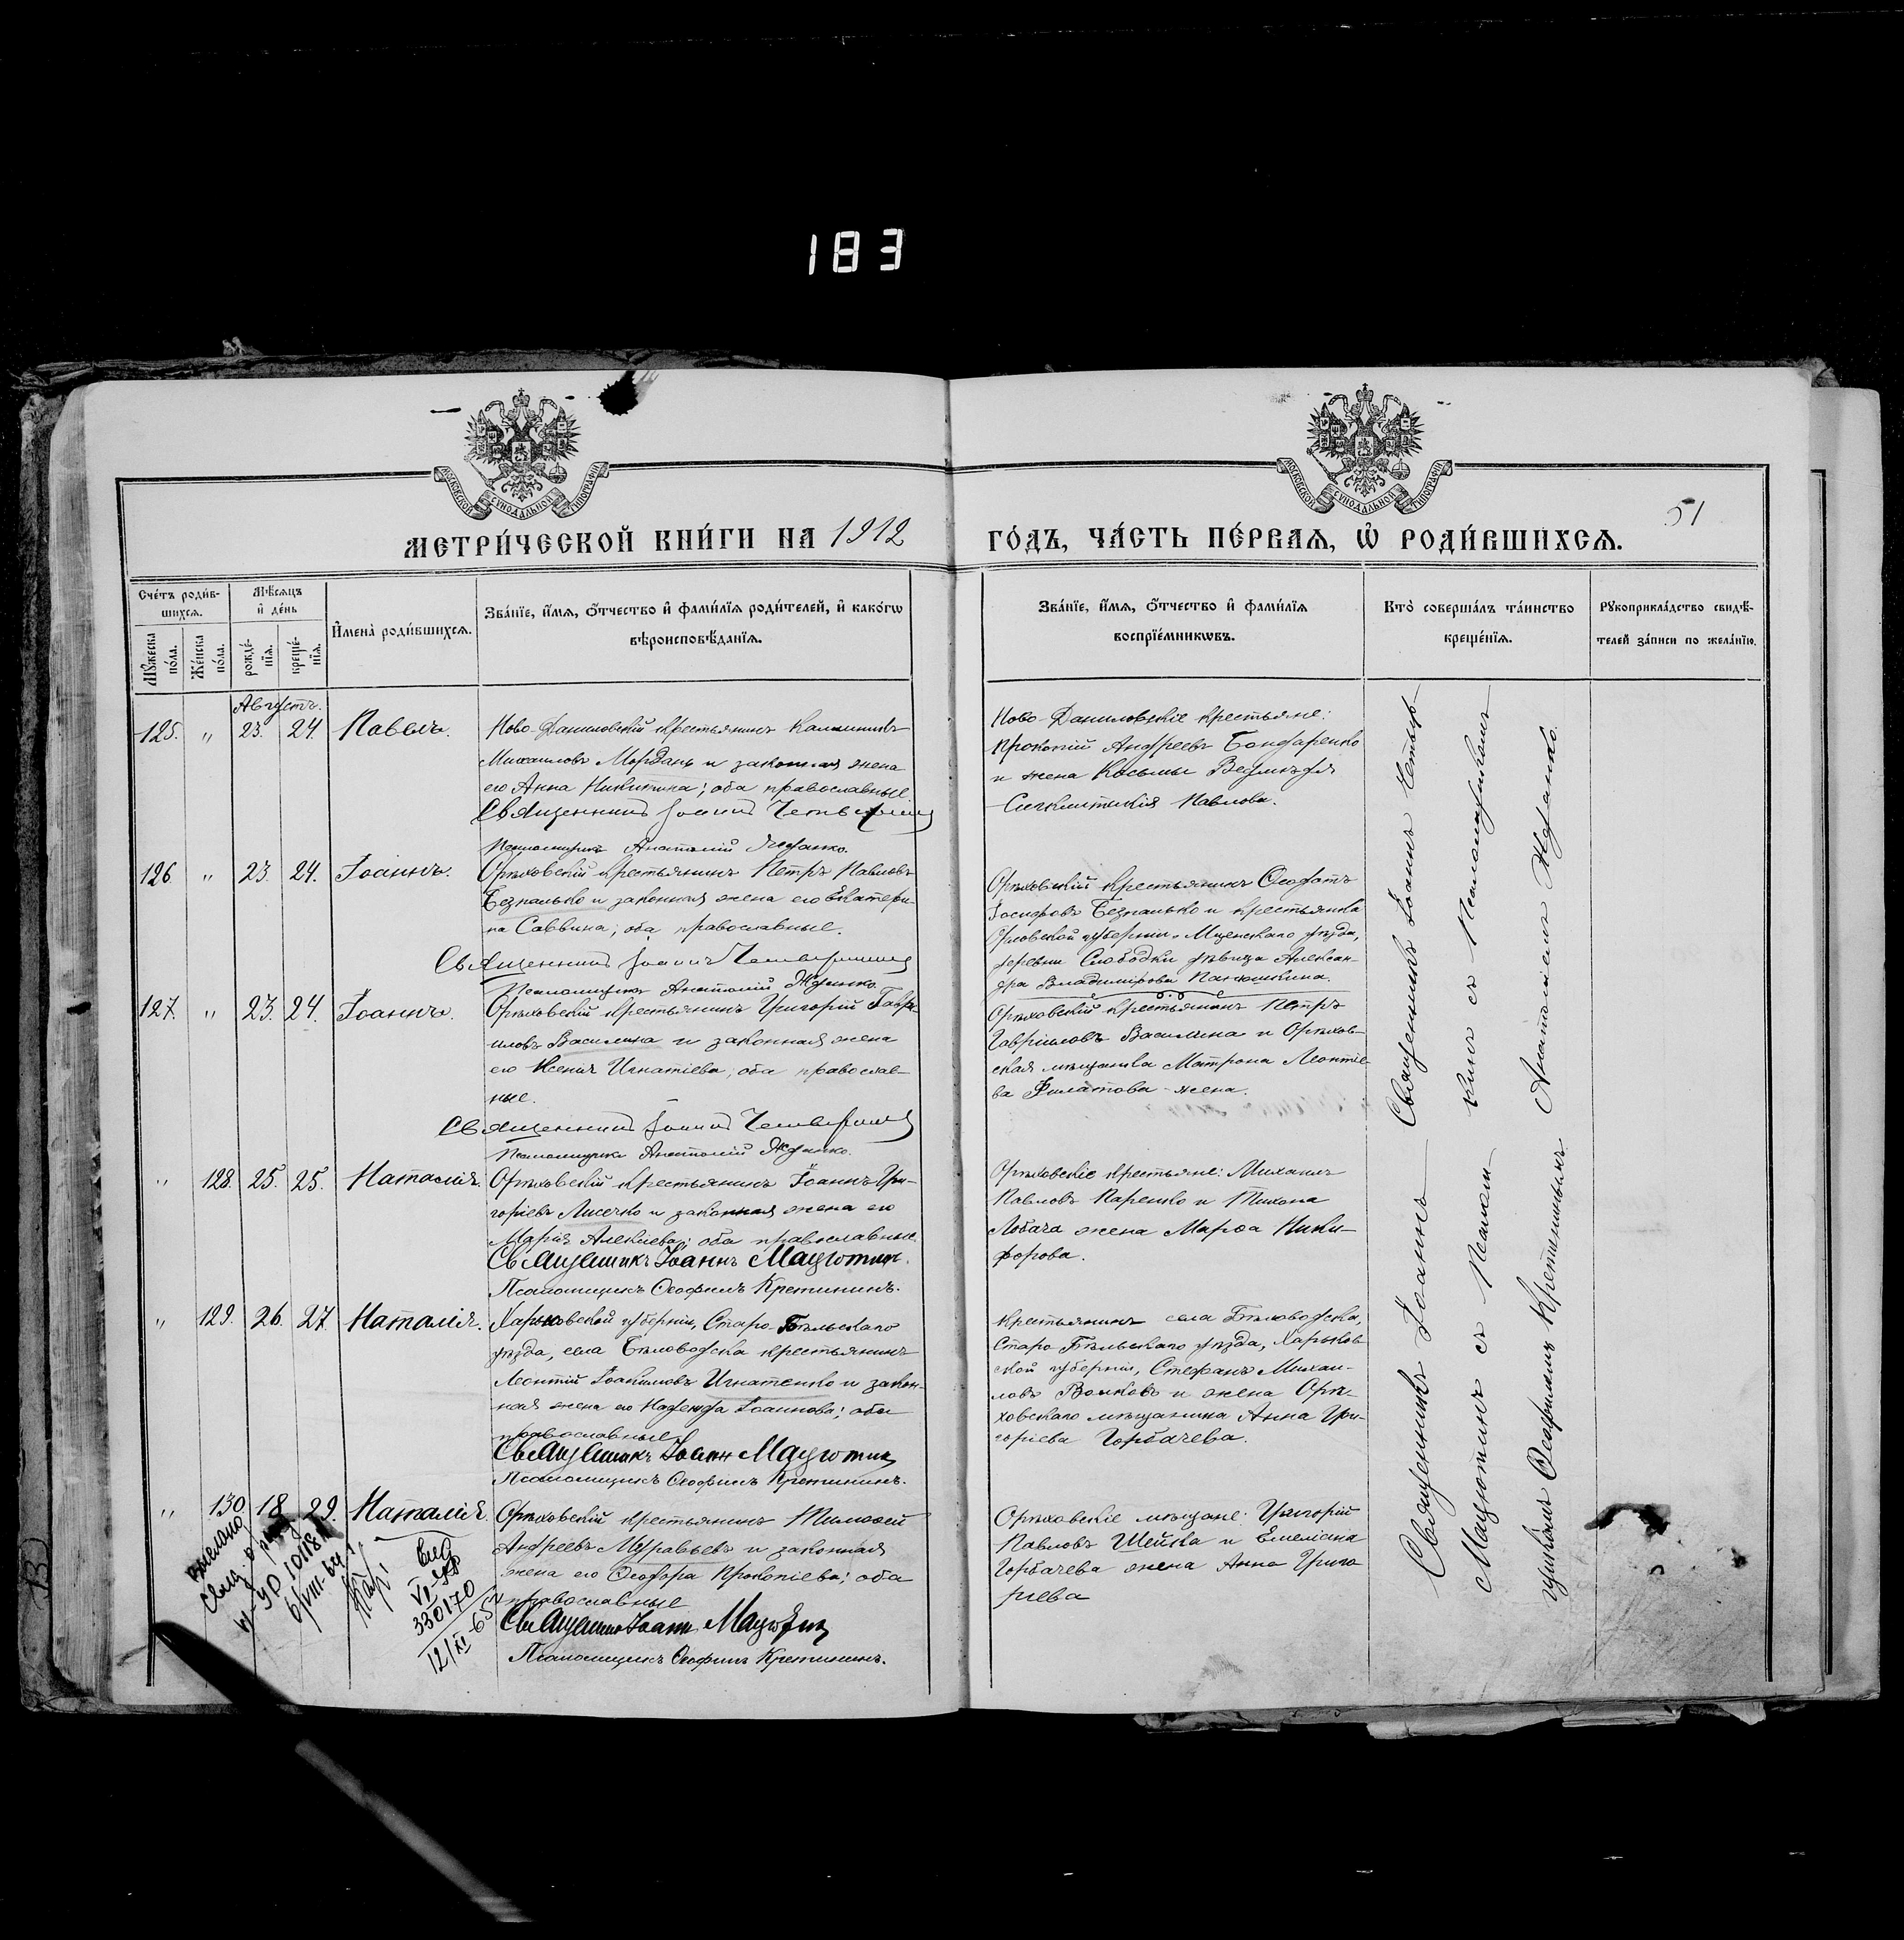 183
МОСКОВСКОЙ СѴНОДАЛЬНОЙ ТИПОГРАФІИ
МОСКОВСКОЙ СѴНОДАЛЬНОЙ ТИПОГРАФІИ
51
МЕТРИ́ЧЕСКОЙ КНИ́ГИ НА 1912 ГО́ДЪ, ЧА́СТЬ ПЕ́РВАЯ, Ѡ҆ РОДИ́ВШИХСЯ.
Сче́тъ роди́в-
шихся.
Мꙋ́жеска по́ла.
Же́нска по́ла.
Мѣ́сяцъ
и҆ де́нь
рожде́-
нїя.
креще́-
нїя.
И҆мена̀ роди́вшихся.
Зва́нїе, и҆́мя, ѻ҆́тчество и҆ фами́лїя роди́телей, и҆ како́гѡ
вѣроисповѣ́данїя.
Зва́нїе, и҆́мя, ѻ҆́тчество и҆ фами́лїя
воспрїе́мникѡвъ.
Кто̀ соверша́лъ та́инство
креще́нїя.
Рꙋкоприкла́дство свидѣ́-
телей за́писи по жела́нїю.
Августъ.
125. " 23. 24. Павелъ.
Ново-Даниловскій крестьянинъ Каллиникъ
Михаиловъ Мордань и законная жена
его Анна Никитина; оба православные
Священникъ Іоаннъ
Псаломщикъ Анатолій Жданко.
Ново-Даниловскіе крестьяне:
Прокопій Андреевъ Бондаренко
и жена Косьмы
Синклитикія Павлова.
126. " 23. 24. Іоаннъ.
Орѣховскій крестьянинъ Петръ Павловъ
Безпалько и законная жена его Екатери-
на Саввина; оба православные.
Священникъ Іоаннъ
Псаломщикъ Анатолій Жданко
Орѣховскій крестьянинъ Ѳеофатъ
Іосифовъ Безпалько и крестьянка
Орловской губерніи, Мценскаго уѣзда,
деревни Слободки дѣвица Алексан-
дра Владимірова Панюшкина.
127. " 23. 24. Іоаннъ.
Орѣховскій крестьянинъ Григорій Гаврі-
иловъ Василина и законная жена
его Ксенія Игнатіева; оба православ-
ные.
Священникъ Іоаннъ
Псаломщикъ Анатолій Жданко.
Орѣховскій крестьянинъ Петръ
Гавріиловъ Василина и Орѣхов-
ская мѣщанка Матрона Леонтіе-
ва Филатова-жена.
" 128. 25. 25. Наталія.
Орѣховскій крестьянинъ Іоаннъ Гри-
горіевъ Лисечко и законная жена его
Марія Алексіева; оба православные.
Священникъ Іоаннъ Мацютинъ.
Псаломщикъ Ѳеофилъ Кретининъ.
Орѣховскіе крестьяне: Михаилъ
Павловъ Паренко и Тихона
Лобача жена Марѳа Ники-
форова.
" 129. 26. 27. Наталія.
Харьковской губерніи, Старо-Бѣльскаго
уѣзда, села Бѣловодска крестьянинъ
Леонтій Іоакимовъ Игнатенко и закон-
ная жена его Надежда Іоаннова; оба
православные.
Священникъ Іоаннъ Мацютинъ
Псаломщикъ Ѳеофилъ Кретининъ.
Крестьянинъ села Бѣловодска,
Старо-Бѣльскаго уѣзда, Харьков-
ской губерніи, Стефанъ Михаи-
ловъ Волковъ и жена Орѣ-
ховскаго мѣщанина Анна Гри-
горіева Горбачева.
" 130. 18 29. Наталія.
Орѣховскій крестьянинъ Тимоѳей
Андреевъ Муравьевъ и законная
жена его Ѳеодора Прокопіева; оба
православные
Священникъ Іоаннъ Мацютинъ
Псаломщикъ Ѳеофилъ Кретининъ.
Орѣховскіе мѣщане: Григорій
Павловъ Шейка и Емеліана
Горбачева жена Анна Григо-
ріева
330170
Священникъ Іоаннъ
Псаломщикомъ
Анатоліемъ Жданко.
Священникъ Іоаннъ
Мацютинъ съ Псалом-
щикомъ Ѳеофиломъ Кретининымъ